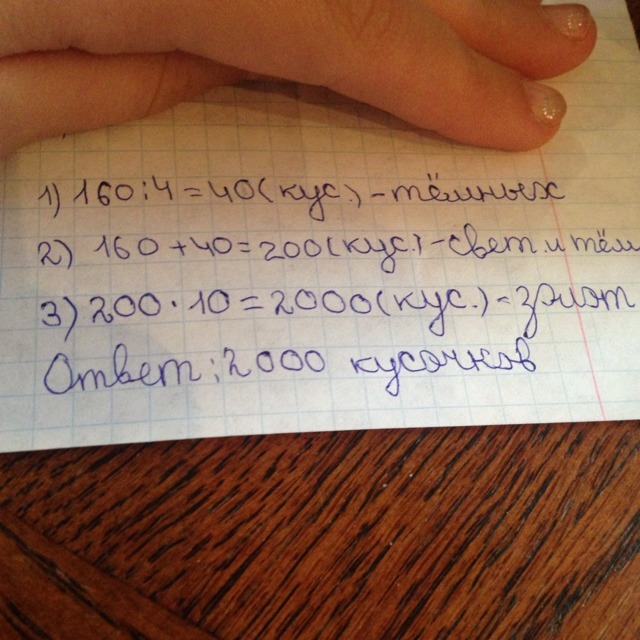 1) 160:4=40(кус.)-тёмных
2) 160+40=200(кус)-свет и тём
3) 200·10=2000(кус.)-
Ответ: 2000 кусочков